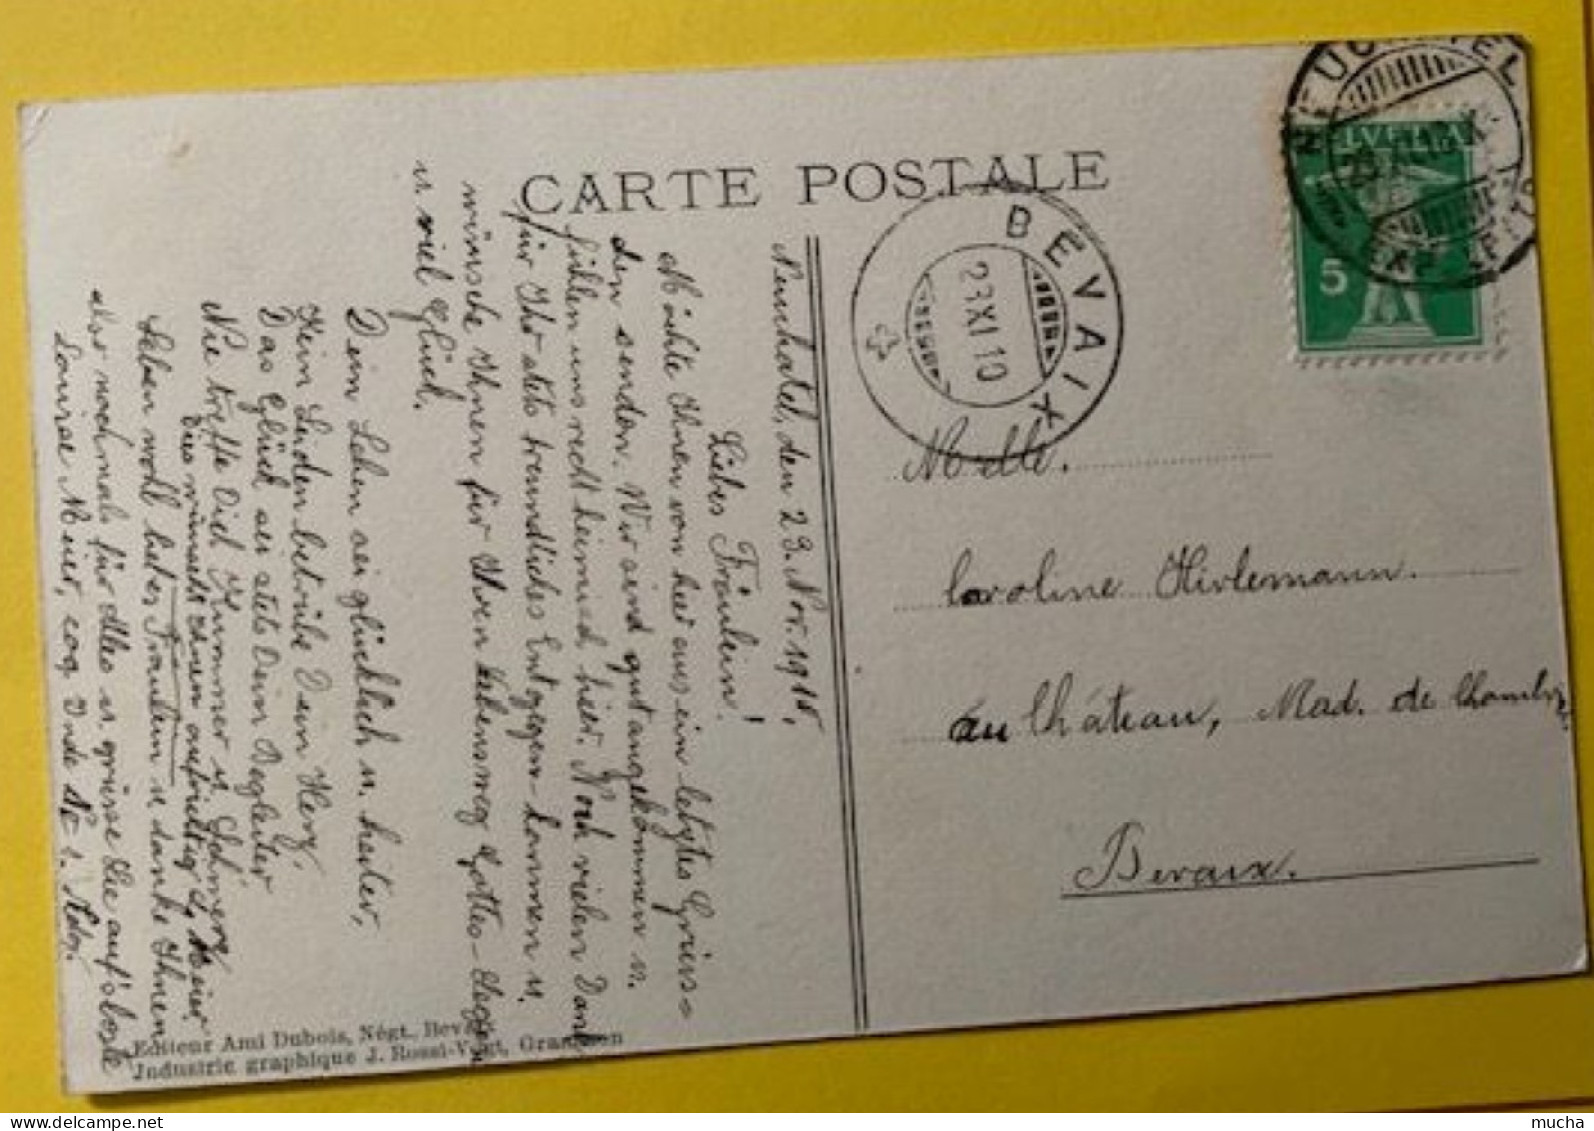 CARTE POSTALE
NEUCHATEL
BEVAIX
23 XI 10
HELVETIA
5
Neuchatel, den 23. Nov. 1910,
Liebes Fräulein!
Möchte Ihnen von hier aus ein letztes Grüss-
len senden. Wir sind gut angekommen u.
fühlen uns recht heimisch hier. Noch vielen Dank
für Ihr stets freundliches Entgegen-kommen u.
wünsche Ihnen für Ihren Lebensweg Gottes-Segen
u. viel Glück.
Dein Leben sei glücklich u. heiter,
Kein Leiden betrübe Dein Herz,
Das Glück sei stets Dein Begleiter
Nie treffe Dich Kummer u. Schmerz
Dies wünscht Ihnen aufrichtig L. Meier
Leben wohl liebes Fräulein u danke Ihnen
also nochmals für alles u. grüsse Sie auf's beste
Louise Meier,
Melle.
Caroline Hirlemann.
au Château, Mad. de Chambrier
Bevaix.
Editeur Ami Dubois, Négt., Bevaix
Industrie graphique J. Rossi-Vogt, Grandson
mucha